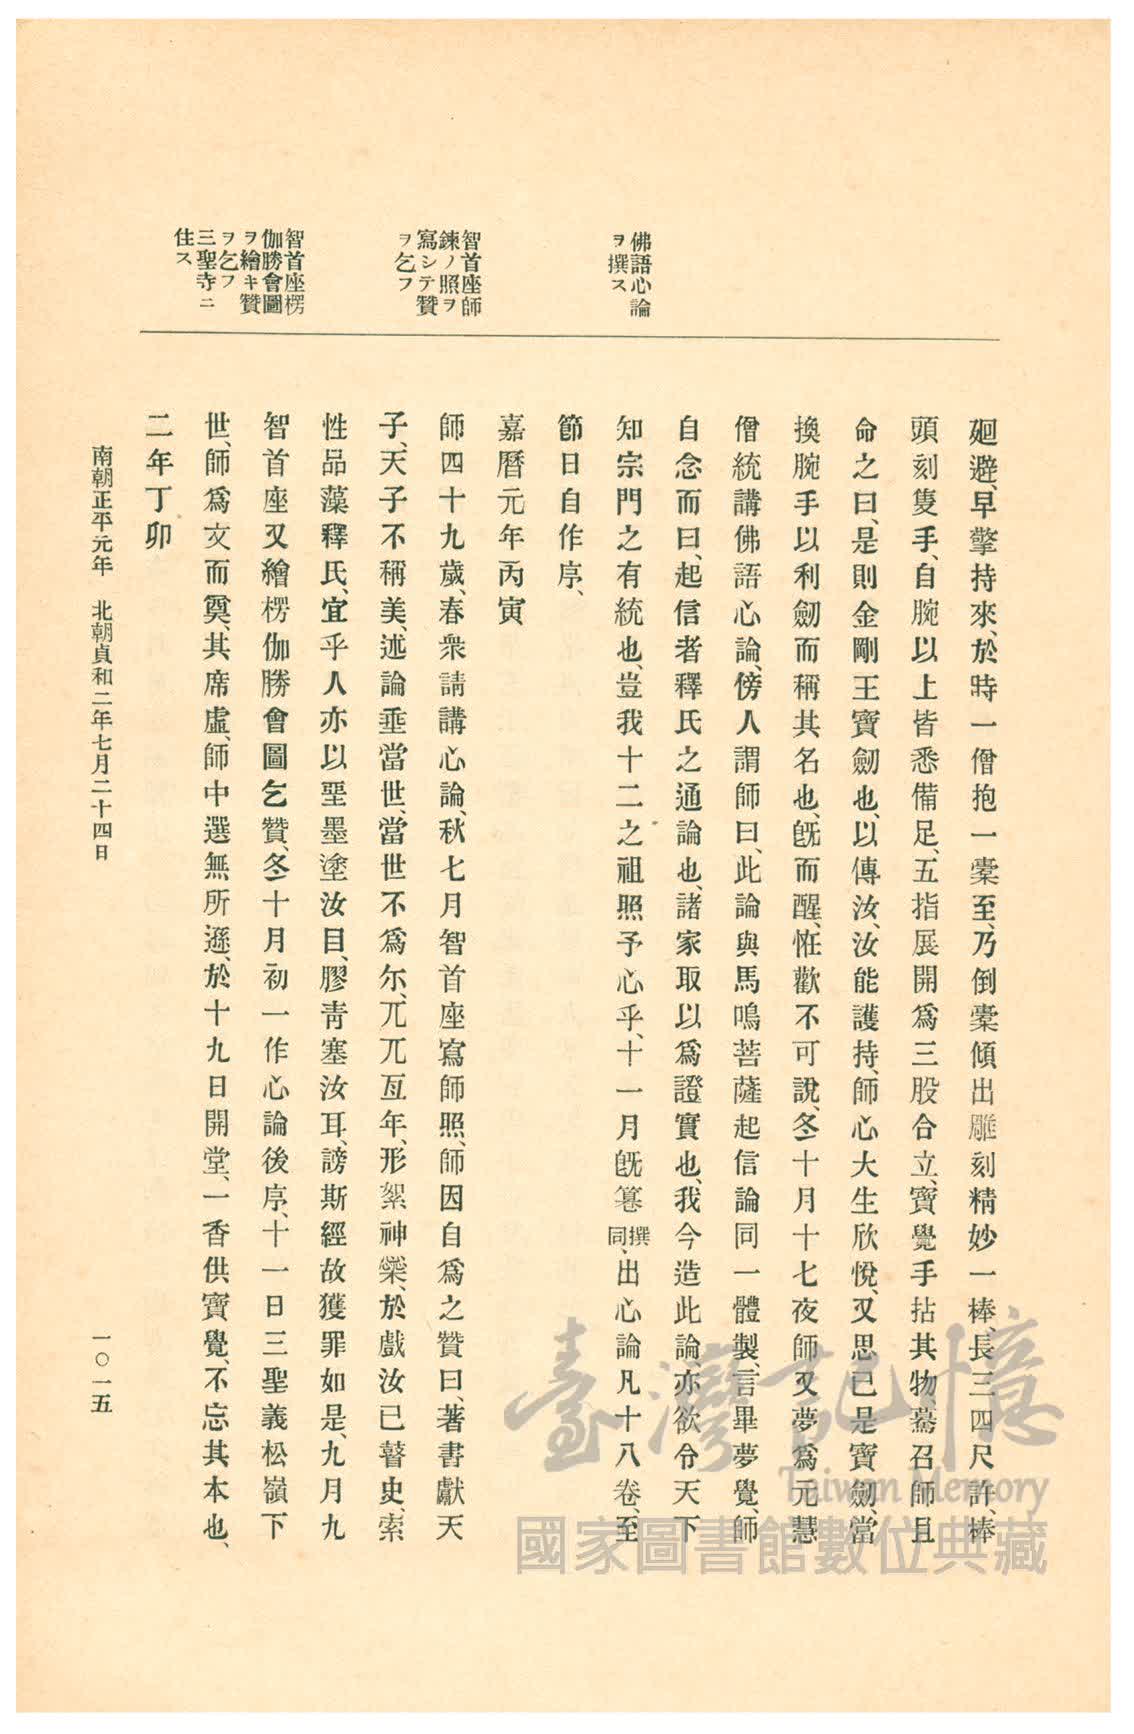 佛語心論
ヲ撰ス
智首座師
鍊ノ照ヲ
寫シテ贊
ヲ乞フ
智首座楞
伽勝會圖
ヲ繪キ贊
ヲ乞フ
三聖寺ニ
住ス
廻避、早擎持來、於時一僧抱一橐至、乃倒橐傾出雕刻精妙一棒、長三四尺許、棒
頭刻隻手、自腕以上皆悉備足、五指展開爲三股合立、寶覺手拈其物、驀召師且
命之曰、是則金剛王寶劒也、以傳汝、汝能護持、師心大生欣悅、又思已是寶劒、當
換腕手以利劒而稱其名也、旣而醒、恠歡不可說、冬十月十七夜師又夢爲元慧
僧統講佛語心論、傍人謂師曰、此論與馬鳴菩薩起信論同一體製、言畢夢覺、師
自念而曰、起信者釋氏之通論也、諸家取以爲證實也、我今造此論亦欲令天下
知宗門之有統也、豈我十二之祖照予心乎、十一月旣簒撰同、出心論凡十八卷、至
節日自作序、
嘉曆元年丙寅
師四十九歲、春衆請講心論、秋七月智首座寫師照、師因自爲之贊曰、著書獻天
子、天子不稱美、述論垂當世、當世不爲尓、兀兀亙年、形絮神檠、於戲汝已瞽史、索
性品藻釋氏、宜乎人亦以堊墨塗汝目、膠靑塞汝耳、謗斯經故獲罪如是、九月九
智首座又繪楞伽勝會圖乞贊、冬十月初一作心論後序、十一日三聖義松嶺下
世、師爲文而奠、其席虛、師中選無所遜、於十九日開堂、一香供寶覺、不忘其本也、
二年丁卯
南朝正平元年　北朝貞和二年七月二十四日
一〇一五
臺灣記憶
Taiwan Memory
國家圖書館數位典藏